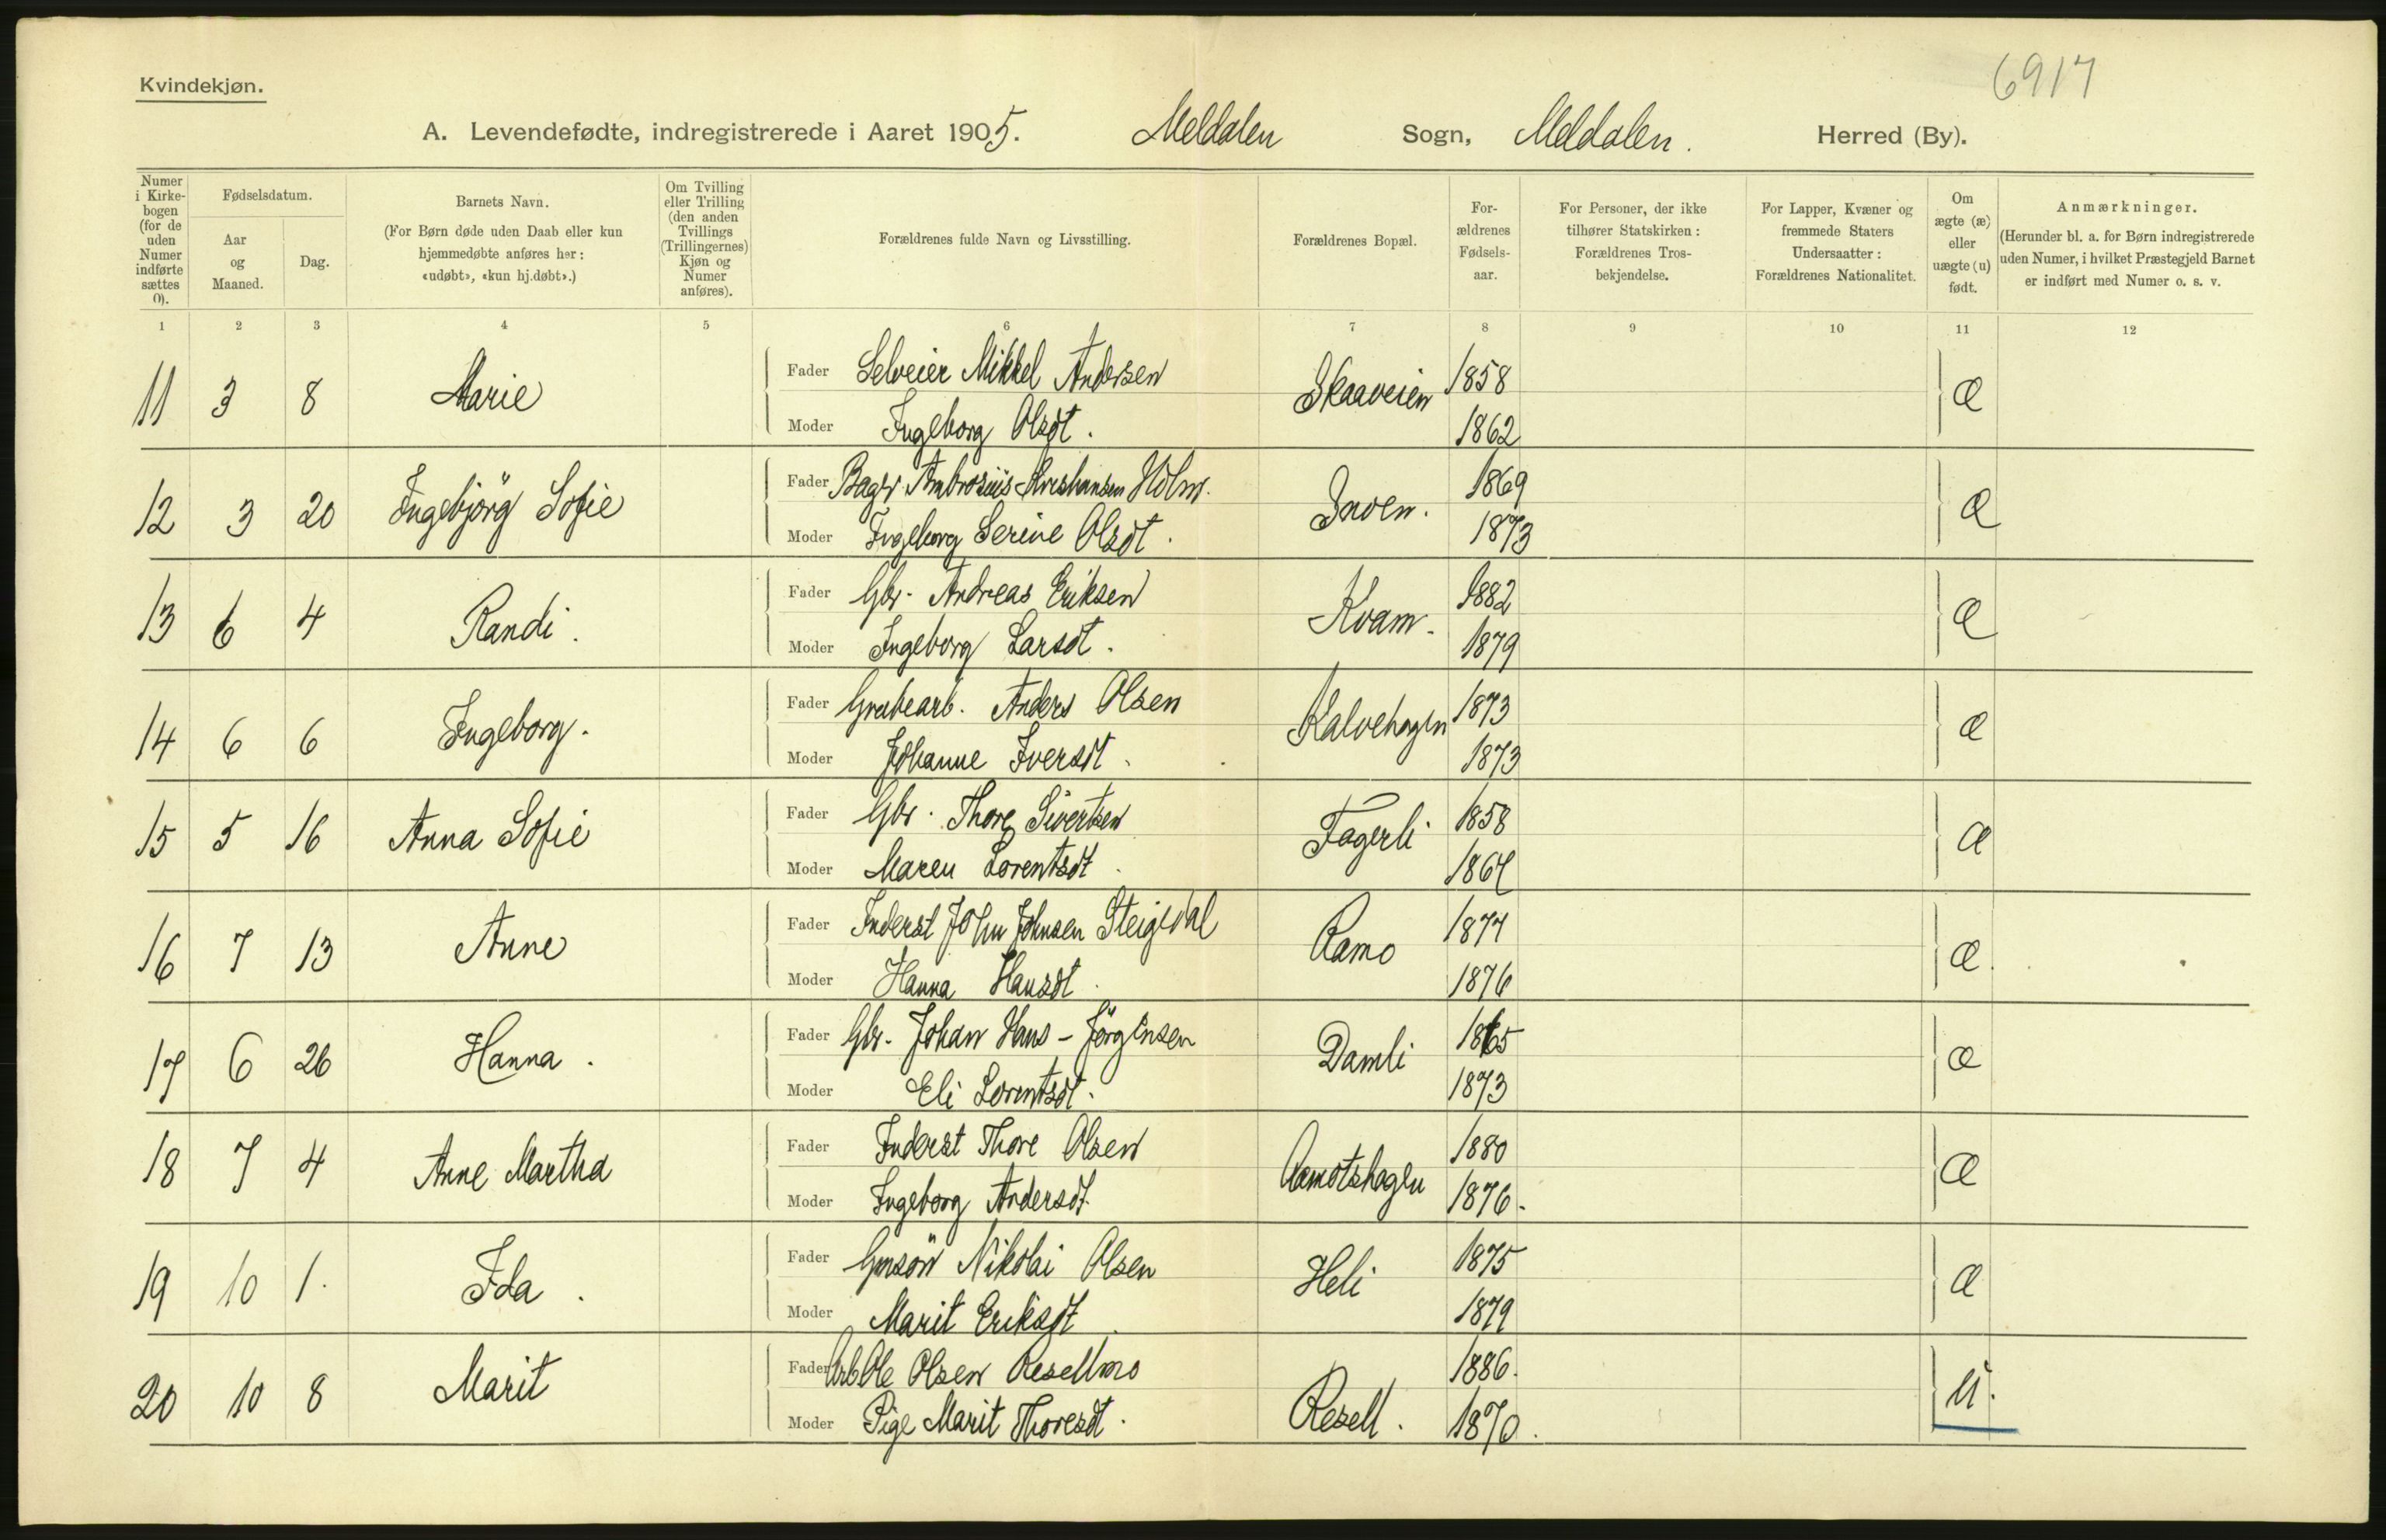 6917
Kvindekjøn.
A. Levendefødte, indregistrerede i Aaret 1905. Meldalen Sogn, Meldalen. Herred (By).
Numer i Kirkebogen (for de uden Numer indførte sættes 0).
Fødselsdatum.
Aar og Maaned.
Dag.
Barnets Navn.
(For Børn døde uden Daab eller kun hjemmedøbte anføres her: «udøbt», «kun hj.døbt».)
Om Tvilling eller Trilling (den anden Tvillings (Trillingernes) Kjøn og Numer anføres).
Forældrenes fulde Navn og Livsstilling.
Forældrenes Bopæl.
Forældrenes Fødselsaar.
For Personer, der ikke tilhører Statskirken: Forældrenes Trosbekjendelse.
For Lapper, Kvæner og fremmede Staters Undersaatter: Forældrenes Nationalitet.
Om ægte (æ) eller uægte (u) født.
Anmærkninger.
(Herunder bl. a. for Børn indregistrerede uden Numer, i hvilket Præstegjeld Barnet er indført med Numer o. s. v.
1 2 3 4 5 6 7 8 9 10 11 12
11 3 8 Marie Fader Selveier Mikkel Andersen Skaaveien 1858 æ
Moder Ingeborg Olsdt. 1862
12 3 20 Ingebjörg Sofie Fader Bager Ambrosius Holm. 1869 æ
Moder Ingeborg Serine Olsdt. 1873
13 6 4 Randi. Fader Gbr. Andreas Eriksen Kvam. 1882 æ
Moder Ingeborg Larsdt. 1879
14 6 6 Ingeborg. Fader Grubearb. Anders Olsen Kalvehagen 1873 æ
Moder Johanne Iversdt. 1873
15 5 16 Anna Sofie Fader Gbr. Thore Sivertsen Fagerli 1858 æ
Moder Maren Lorentsdt.
16 7 13 Anne Fader Inderst John Johnsen Steigedal Ramo 1877 æ.
Moder Hanna Hansdt. 1876
17 6 26 Hanna. Fader Gbr. Johan Hans-Jörgensen Damli 1865 æ
Moder Eli Lorentsdt. 1873
18 7 4 Anne Martha Fader Inderst Thore Olsen Aamotshagen 1880 æ
Moder Ingeborg Andersdt. 1876.
19 10 1. Ida. Fader Gmsön Nikolai Olsen Heli 1875 æ
Moder Marit Eriksdt. 1879
20 10 8 Marit Fader Arb Ole Olsen Resellmo Resell. 1886. u.
Moder Pige Marit Thoresdt. 1870.